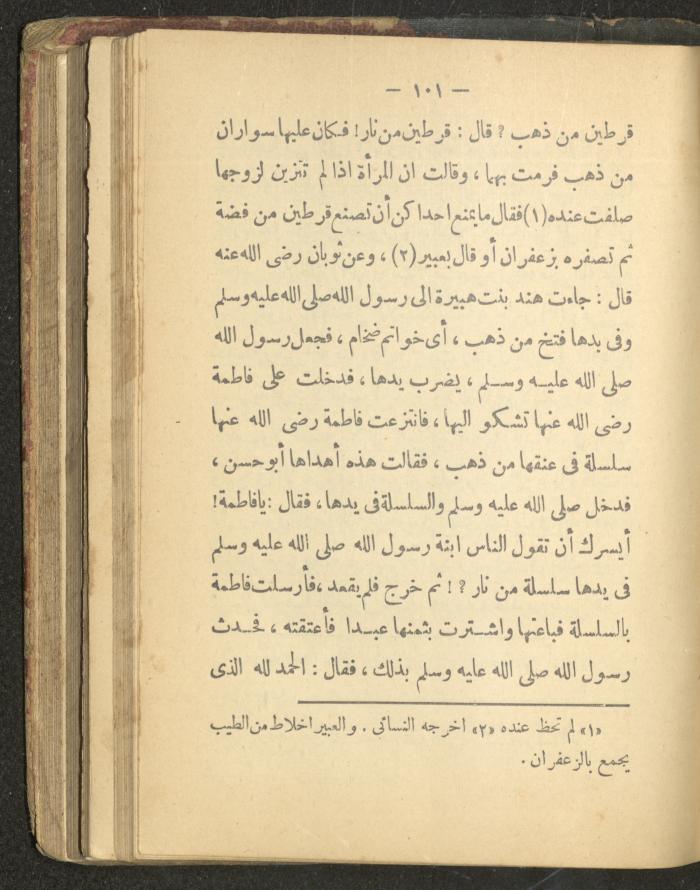 — ١٠١ —
قرطين من ذهب ? قال : قرطين من نار ! فكان عليها سواران
من ذهب فرمت بهما ، وقالت ان المرأة اذا لم تتزين لزوجها
صلفت عنده (١) فقال ما يمنع احداكن أن تصنع قرطين من فضة
ثم تصفره بزعفران أو قال بعبير (٢) ، وعن ثوبان رضى الله عنه
قال : جاءت هند بنت هبيرة الى رسول الله صلى الله عليه وسلم
وفى يدها فتخ من ذهب ، أى خواتم ضخام ، فجعل رسول الله
صلى الله عليه وسلم ، يضرب يدها ، فدخلت على فاطمة
رضى الله عنها تشكو اليها ، فانتزعت فاطمة رضى الله عنها
سلسلة فى عنقها من ذهب ، فقالت هذه أهداها أبو حسن ،
فدخل صلى الله عليه وسلم والسلسلة فى يدها ، فقال : يا فاطمة !
أيسرك أن تقول الناس ابنة رسول الله صلى الله عليه وسلم
فى يدها سلسلة من نار ? ! ثم خرج فلم يقعد ، فأرسلت فاطمة
بالسلسلة فباعتها واشترت بثمنها عبدا فأعتقته ، فحدث
رسول الله صلى الله عليه وسلم بذلك ، فقال : الحمد لله الذى
«١» لم تحظ عنده «٢» اخرجه النسائى . والعبير اخلاط من الطيب
يجمع بالزعفران .